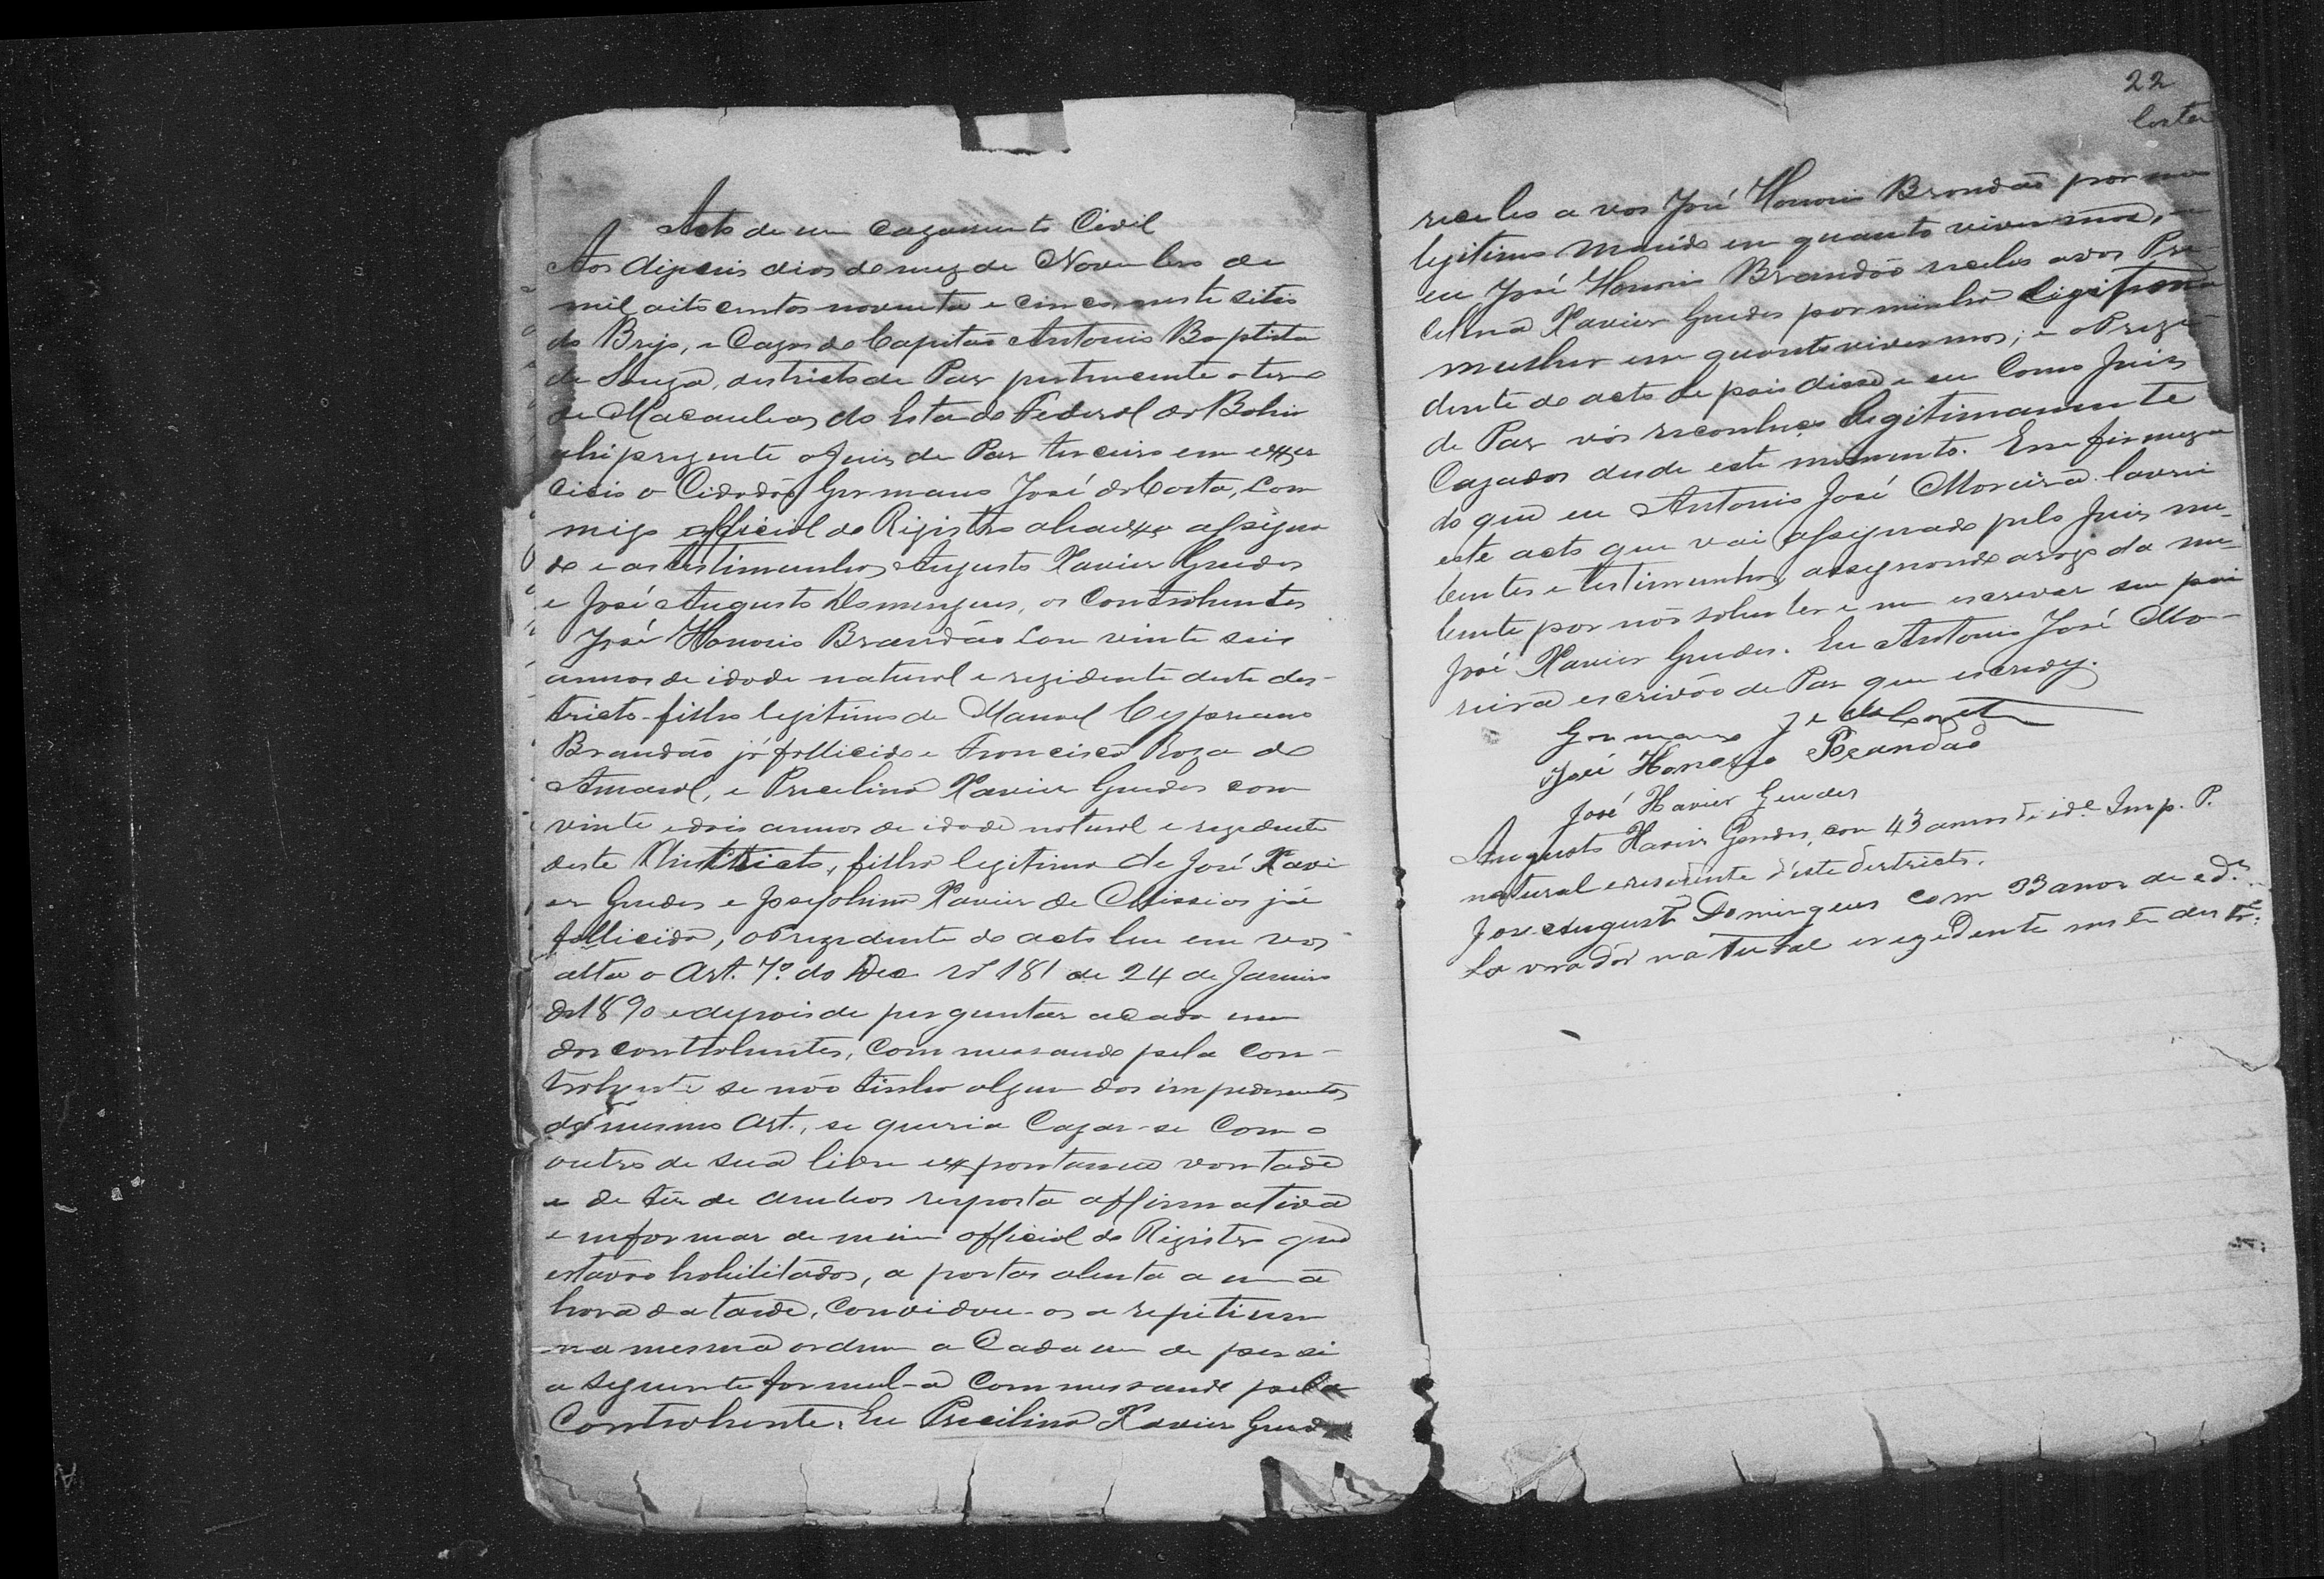 Acto de um cazamento Civil
Aos dipois dias do mez de Novembro de
mil aitocentos noventa e cinco, neste sitio
do Brejo, e Cazas do Capitão Antonio Baptista
de Souza, districto de Paz pertencente o termo
de Macaubas do Estado Federal da Bahia
ahi prezente o Juis de Paz terceiro em exxer
cicio o Cidadão Germano José da Costa, com
migo official do Registro abaixo assigna
do e as testimunhas Augusto Xavier Guedes
e José Augusto Domingues, os Contrahentes
José Honorio Brandão com vinte seis
annos de idade natural e rezidente deste des-
tricto filho legitimo de Manoel Cypriano
Brandão já fallicido e Francisca Roza do
Amaral, e Prucilina Xavier Guedes com
vinte e dois annos de idade natural e rezedente
deste Districto, filha legitima de José Xavi
er Guedes e Josephina Xavier de Missias já
fallicida, o Prezedente do acto leu em vos
alta o Art. 7º do Dec. Nº 181 de 24 de Janeiro
de 1890 e depois de perguntar a cada um
dos contrahentes, commessando pela Con-
trahente se não tinha algum dos impedimentos
do mesmo Art., se queria Cazar-se Com o
outro de sua livre exxpontanea vontade
e de ter de ambos resposta affirmativa
e informar de mim official do Registro que
estavão habilitados, a portas aberta a uma
hora da tarde, Convidou-os a repitirem
na mesma ordem a Cada um de per si
a seguinte formula Commessando pela
Contrahente, Eu Prucilina Xavier Guedes
22
Costa
recebo a vos José Honorio Brandão por meu
legitimo marido em quanto vivermos, e
eu José Honorio Brandão recebo a vos Pru-
cilina Xavier Guedes por minha ligitima
mulher em quanto vivermos; e o Preze-
dente do acto de pois disse e eu Como Juis
de Paz vós reconheço legitimamente
Cazados desde este momento. Em firmeza
do que eu Antonio José Moreira lavrei
este acto que vai assignado pelo Juis nu-
bentes e testimunhas, assignando arogo da nu-
bente por nõo saber ler e nem escrever seu pai
José Xavier Guedes. Eu Antonio José Mo-
reira escrivão de Paz que escrevy.
Germano Je da Costa
José Honorio Brandão
José Xavier Guedes
Augusto Xavier Guedes, com 43 annos de ide Imp. P.
natural e residente d'este destricto.
José Augusto Domingues com 33 anos de ede
Lavrador natural e rezedente neste destro.